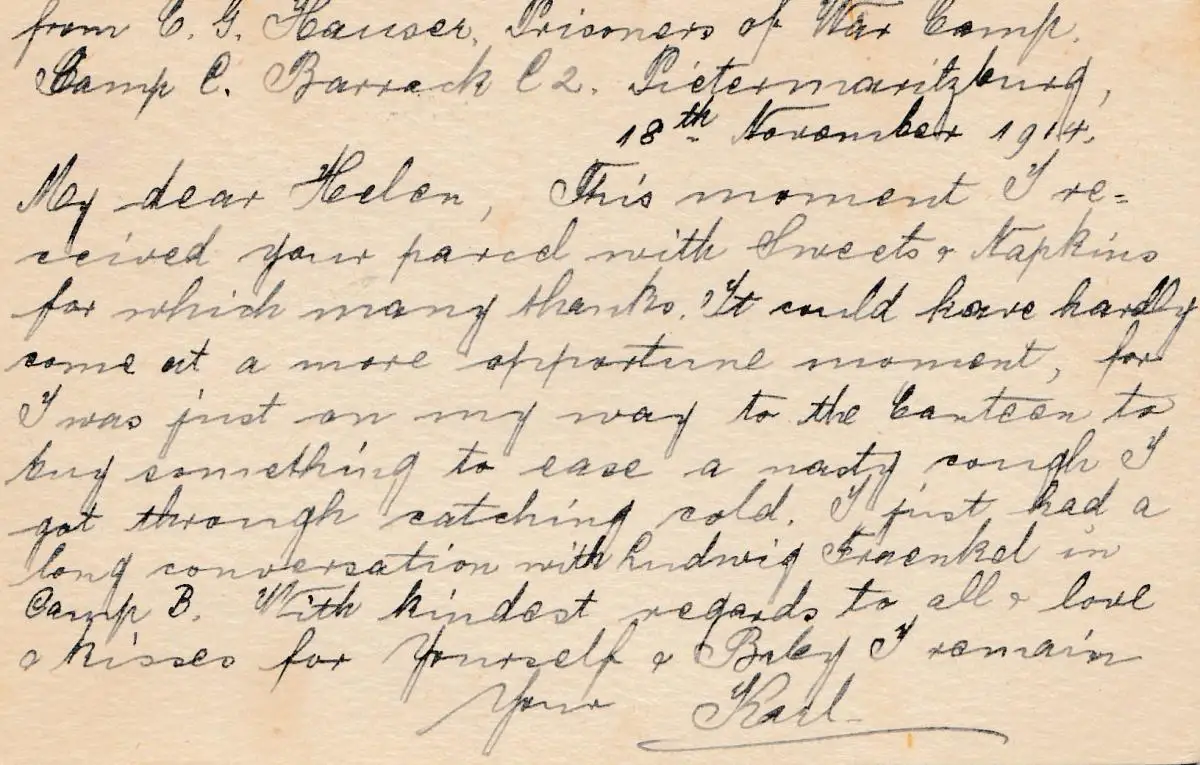 from C. G. Hauser, Prisoners of War Camp.
Camp C. Barrack C2. Pietermaritzburg,
18th November 1914.
My dear Helen, This moment I re=
ceived your parcel with Sweets & Napkins
for which many thanks. It could have hardly
come at a more opportune moment, for
I was just on my way to the Canteen to
buy something to ease a nasty cough I
got through catching cold. I just had a
long conversation with Ludwig Fraenkel in
Camp B. With kindest regards to all & love
& kisses for Yourself & Baby I remain
Your Karl